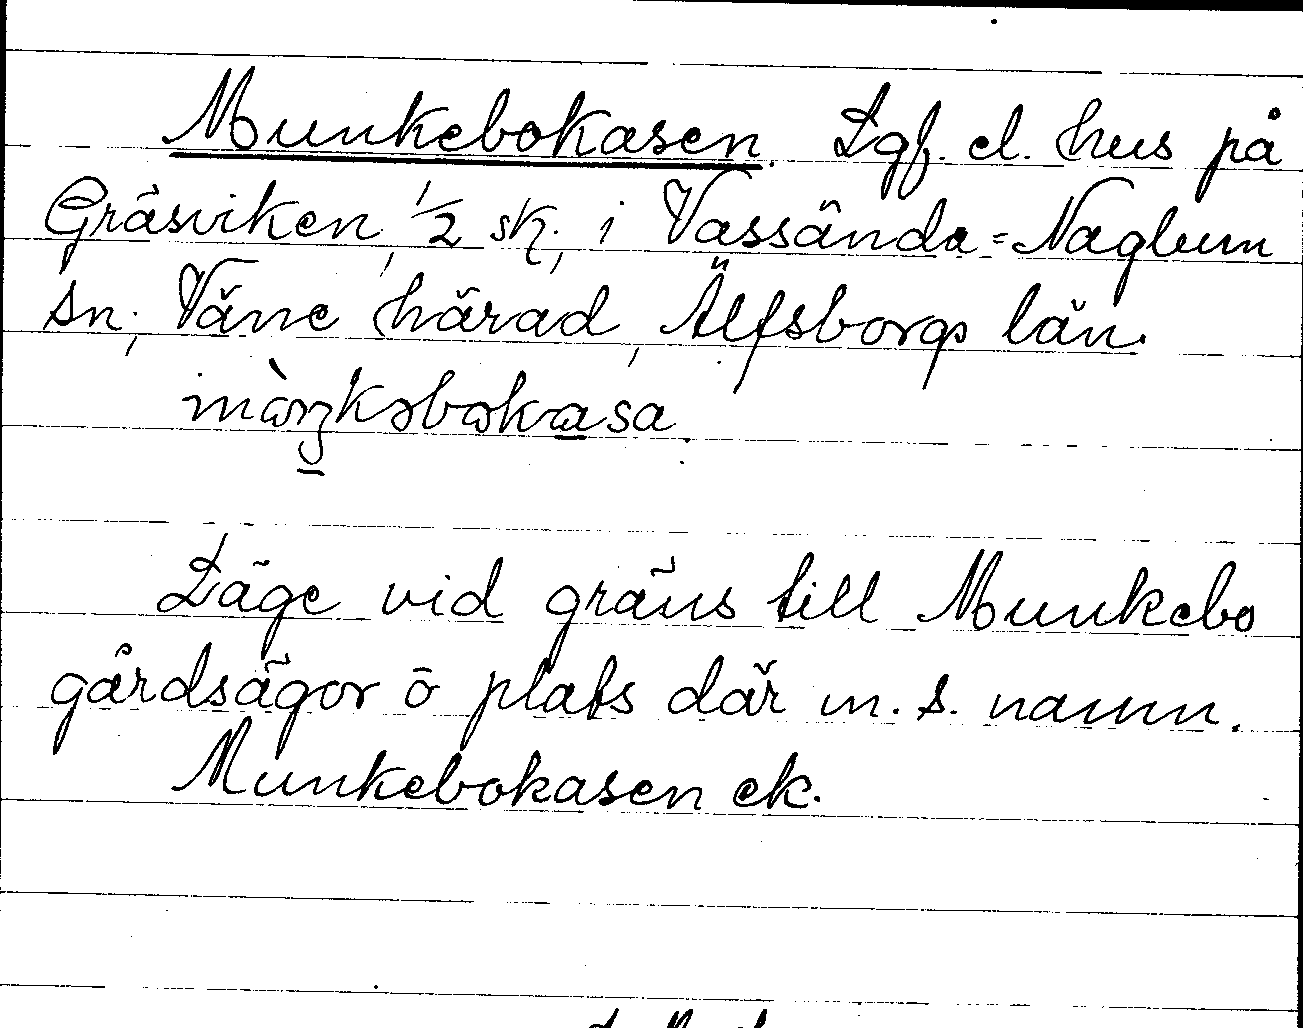 Munkebokasen. Lgf. el. hus på
Gräsviken, 1/2 sk., i Vassända-Naglum
sn., Väne härad, Älfsborgs län.
Läge vid gräns till Munkebo
gårdsägor o plats där m. s. namn.
Munkebokasen ek.